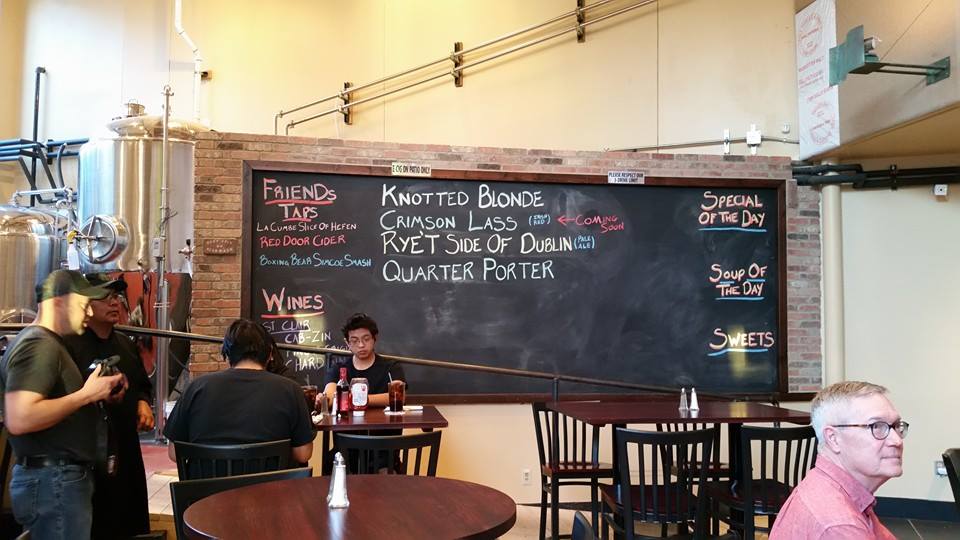 E CIG ON PATIO ONLY
PLEASE RESPECT OUR
3 DRINK LIMIT
FRIENDS
TAPS
LA CUMBE SLICE OF HEFEN
RED DOOR CIDER
BOXING BEAR SIMCOE SMASH
WINES
ST CLAIR
CAB-ZIN
HARD
KNOTTED BLONDE
CRIMSON LASS (IRISH RED) ← COMING SOON
RYE'T SIDE OF DUBLIN (PALE ALE)
QUARTER PORTER
SPECIAL
OF THE DAY
SOUP OF
THE DAY
SWEETS